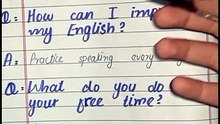 Q: How can I
my English?
A: Practice speaking every
Q: What do you do
your free time?